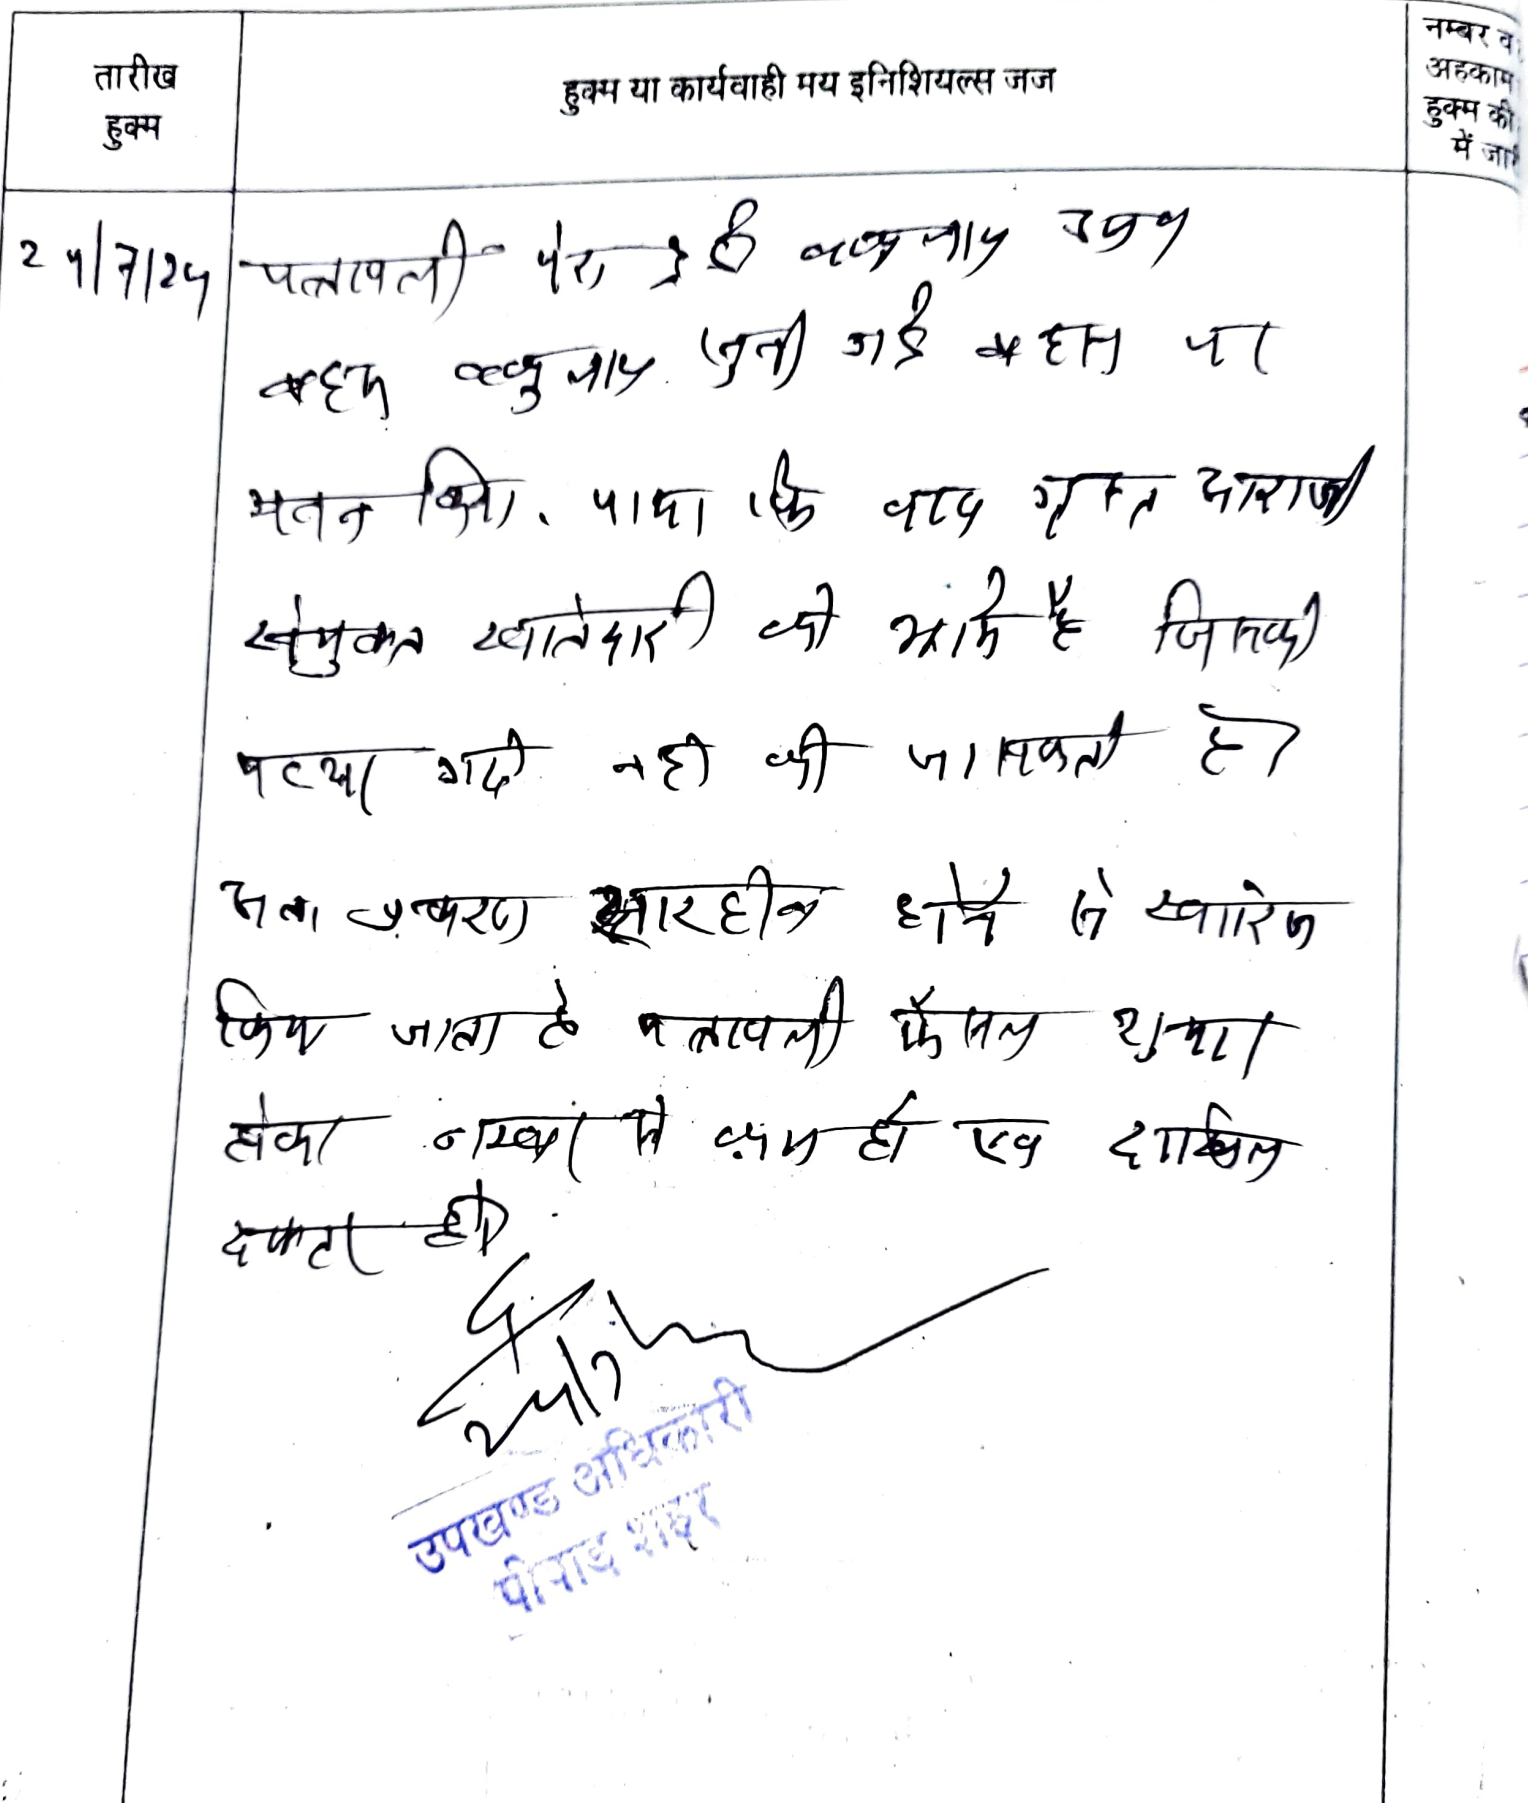 तारीख
हुक्म
हुक्म या कार्यवाही मय इनिशियल्स जज
नम्बर व
अहकाम
हुक्म की
में जा
24/7/24
पत्रावली पेश हुई वकुलाय उपण
बहस वकुलाय सुनी गई बहस पर
मनन किया. पाया कि वाद ग्रस्त आराजी
संयुक्त खातेदारी की भूमि है जिसकी
पत्थर गढी नही की जा सकती है।
अतः प्रकरण सारहीन होने से खारिज
किया जाता है पत्रावली फैसल शुमार
होकर नम्बर से कम हो एवं दाखिल
दफ्तर हो।
उपखण्ड अधिकारी
पीपाड़ शहर